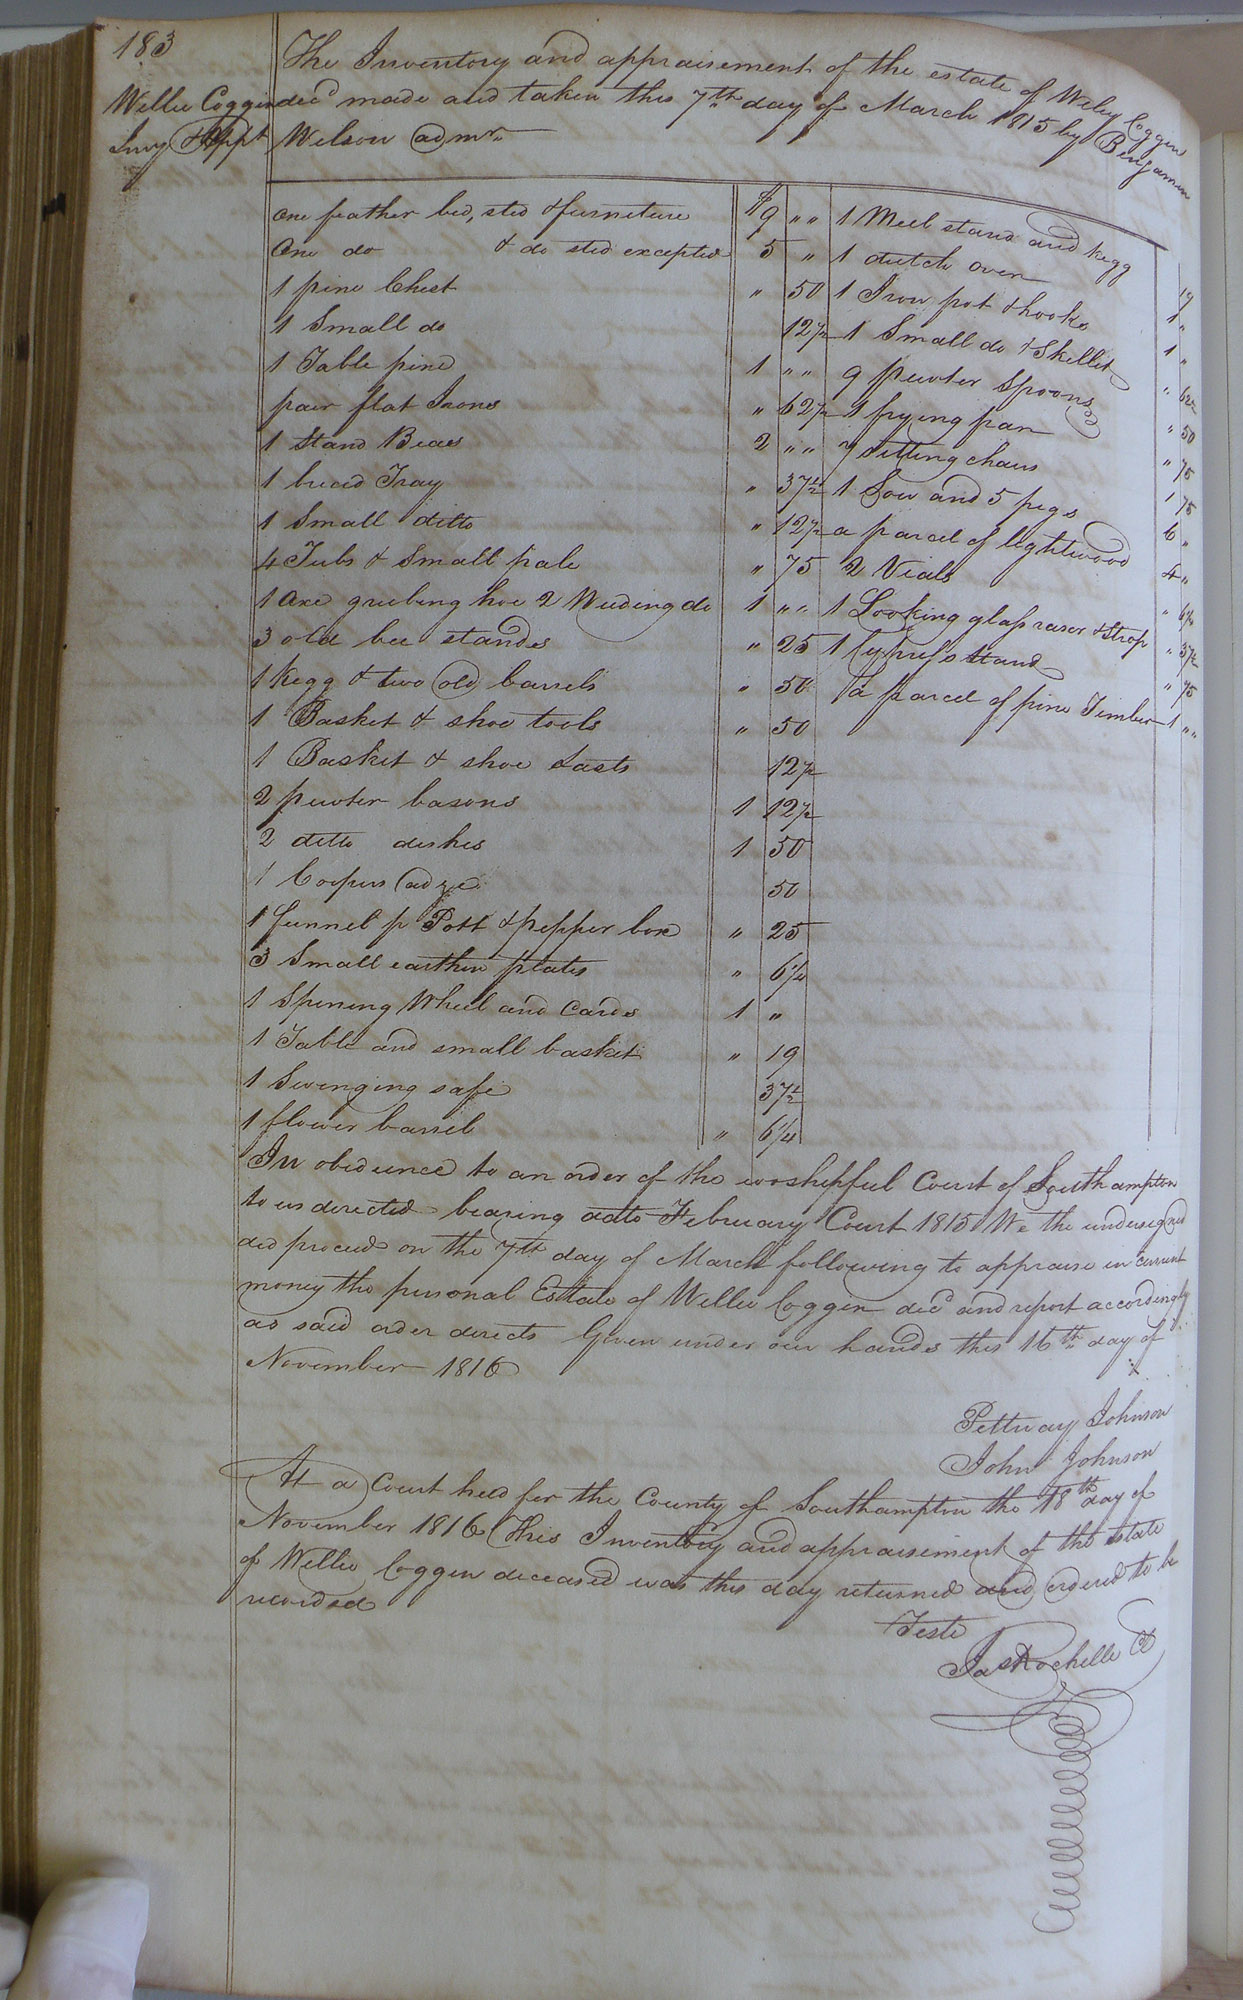 183
The Inventory and appraisement of the estate of Wiley Coggin
Willie Coggin decd made and taken this 7th day of March 1815 by Benjamin
Invy & Appt Wilson admr
One feather bed, sted & furneture $9 " "
One do & do sted excepted 5 "
1 pine Chest " 50
1 Small do 12½
1 Table pine 1 " "
pair flat Irons " 62½
1 Stand Bees 2 " "
1 bread Tray " 37½
1 Small ditto " 12½
4 Tubs & Small pale " 75
1 axe grubing hoe 2 Weeding do 1 " "
3 old bee stands " 25
1 Kegg & two old barrels " 50
1 Basket & shoe tools " 50
1 Basket & shoe Lasts 12½
2 pewter basons 1 12½
2 ditto dishes 1 50
1 Coopers adze 50
1 funnel p Pott & pepper box " 25
3 Small earthen plates " 6¼
1 Spining Wheel and Cards 1 "
1 Table and small basket " 19
1 Swinging safe 37½
1 flower barrel " 6¼
1 Meel stand and Kegg 19
1 dutch oven 1 "
1 Iron pot & hooks 1 "
1 Small do & Skillet " 62½
9 pewter Spoons " 50
1 frying pan " 75
7 sitting chairs 1 75
1 Sow and 5 pigs 6 "
a parcel of lightwood 4 "
2 Vials " 6¼
1 Looking glass rasor & strop " 37½
1 Cypress Stand " 75
a parcel of pine Timber 1 " "
In obedience to an order of the worshipful Court of Southampton
to us directed bearing date February Court 1815 We the undersigned
did proceed on the 7th day of March following to appraise in current
money the personal Estate of Willie Coggin decd and report accordingly
as said order directs Given under our hands this 16th day of
November 1816
Pettway Johnson
John Johnson
At a Court held for the County of Southampton the 18th day of
November 1816 This Inventory and appraisement of the estate
of Willie Coggin deceased was this day returned and ordered to be
recorded
Teste
Jas Rochelle Ct